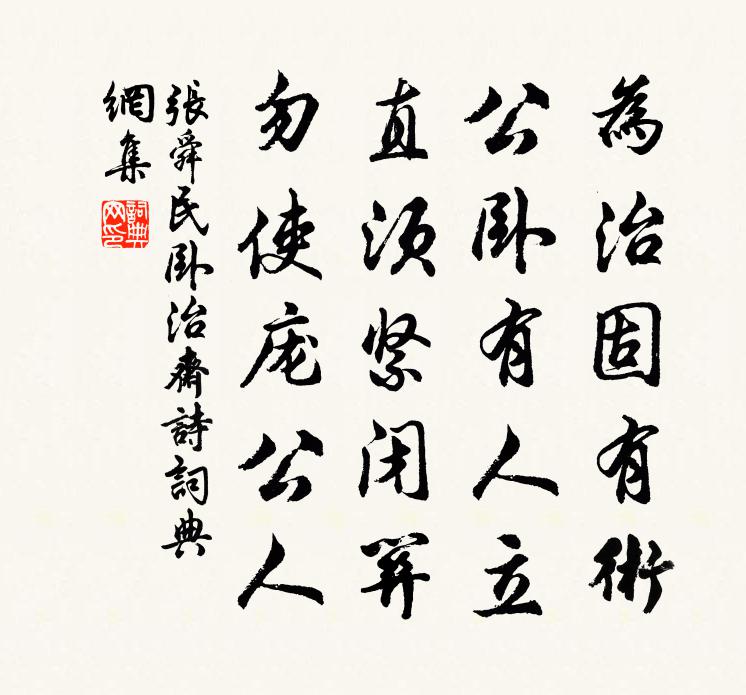 為治固有術
公卧有人立
直須紧闭
勿使庞公人
張舜民卧治齋詩詞典
網集
詞典網印